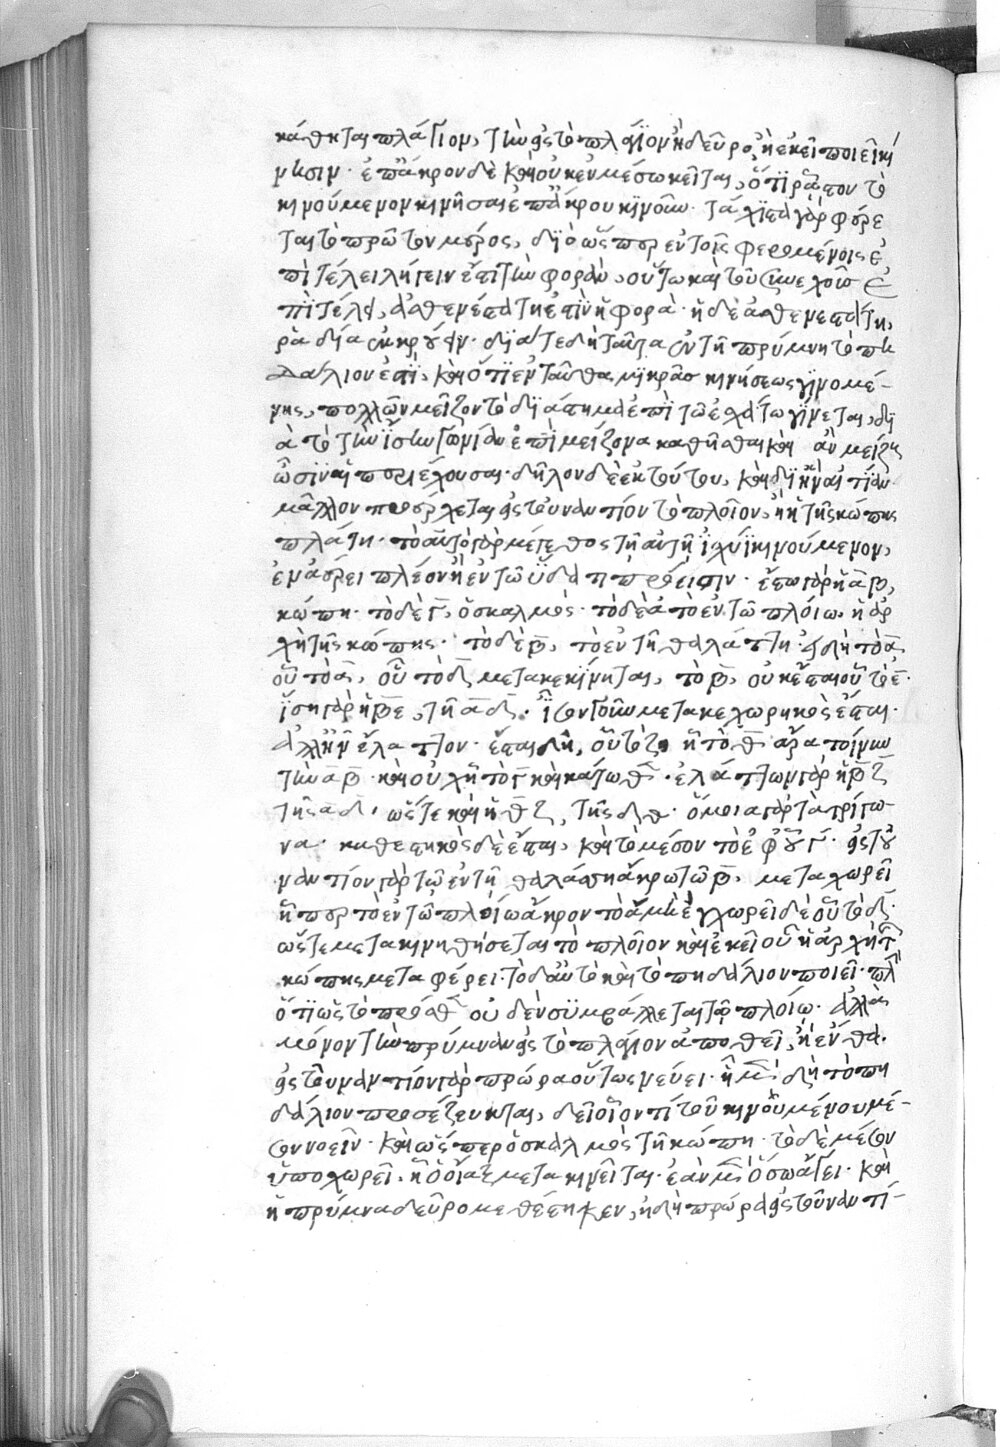 κάθηται πλάγιον, τὴν εἰς τὸ πλάγιον ἢ δεῦρο, ἢ ἐκεῖ ποιεῖ κί
νησιν· ἐπ' ἄκρον δὲ καὶ οὐκ ἐν μέσω κεῖται, ὅτι ῥᾷον τὸ
κινούμενον κινῆσαι ἐπ' ἄκρου κινοῦν· τάχιστα γὰρ φέρε
ται τὸ πρῶτον μέρος, διὸ ὥσπερ ἐν τοῖς φερομένοις ἐ
πὶ τέλει λήγειν ἔτι τὴν φορὰν, οὕτω καὶ τοῦ συνεχοῦς ἐ
πὶ τέλει, ἀσθενέστατη ἐστὶν ἡ φορά· ἡ δὲ ἀσθενεστάτη,
ῥαδία ἐκκρούειν· διά τε δὴ ταῦτα ἐν τῆ πρύμνη τὸ πη
δάλιον ἐστὶ, καὶ ὅτι ἐνταῦθα μικρᾶς κινήσεως γινομέ-
νης, πολλῶ μεῖζον τὸ διάστημα ἐπὶ τῶ ἐσχάτω γίνεται, δι
ὰ τὸ τὴν ἴσην γωνίαν ἐπὶ μείζονα καθῆσθαι καὶ ἂν μείζους
ὦσιν αἱ περιέχουσαι· δῆλον δὲ ἐκ τούτου, καὶ δι' ἣν αἰτίαν
μᾶλλον προέρχεται εἰς τοὐναντίον τὸ πλοῖον, ἢ ἡ τῆς κώπης
πλάτη· τὸ αὐτὸ γὰρ μέγεθος τῆ αὐτῆ ἰσχύϊ κινούμενον,
ἐν ἀέρι πλέον ἢ ἐν τῶ ὕδατι πρόεισιν· ἔστω γὰρ ἡ α̅β̅,
κώπη· τὸ δὲ γ̅, ὁ σκαλμός· τὸ δὲ α τὸ ἐν τῶ πλοίω, ἡ ἀρ
χὴ τῆς κώπης· τὸ δὲ β̅, τὸ ἐν τῆ θαλάττη· εἰ δὴ τὸ α̅
οὗ τὸ α̅, οὗ τὸ δ̅ μετακεκίνηται, τὸ β̅, οὐκ ἔσται οὗ τὸ ε̅·
ἴση γὰρ ἡ β̅ε̅, τῆ α̅δ̅· ἴσον γοῦν μετακεχωρηκὸς ἔσται·
ἀλλ' ἦν ἔλαττον· ἔσται δὴ, οὗ τὸ ζ· ἢ τὸ θ̅ ἄρα τοίνυν
τὴν α̅β̅· καὶ οὐχ ἡ τὸ γ̅ καὶ κάτωθ̅· ἐλάττων γὰρ ἡ β̅ζ̅
τῆς α δ, ὥστε καὶ ἡ θ̅ζ, τῆς δ θ· ὅμοια γὰρ τὰ τρίγω-
να· καθεστηκὸς δὲ ἔσται, καὶ τὸ μέσον τὸ ἐφ' οὗ γ· εἰς τοὐ
ναντίον γὰρ τῶ ἐν τῆ θαλάσση ἄκρω τῶ β̅, μεταχωρεῖ
ἧπερ τὸ ἐν τῶ πλοίω ἄκρον τὸ α̅ μὴ ἐγχωρεῖ δὲ οὗ τὸ δ·
ὥστε μετακινηθήσεται τὸ πλοῖον καὶ ἐκεῖ οὗ ἡ ἀρχὴ τῆς
κώπης μεταφέρει· τὸ δ' αὐτὸ καὶ τὸ πηδάλιον ποιεῖ· πλὴν
ὅτι ὡς τὸ πρόσθ̅ οὐδὲν συμβάλλεται τῶ πλοίω· ἀλλὰ
μόνον τὴν πρύμναν εἰς τὸ πλάγιον ἀπωθεῖ, ἢ ἔνθα.
εἰς τοὐναντίον γὰρ πρώρα οὕτως νεύει· ἧ μὲν δὴ τὸ πη
δάλιον προσέζευκται, δεῖ οἷόν τι τοῦ κινουμένου μέ-
σον νοεῖν· καὶ ὥσπερ ὁ σκαλμὸς τῆ κώπη· τὸ δὲ μέσον
ὑποχωρεῖ, ἧ ὁ οἴαξ μετακινεῖται· ἐὰν μὲν ὅσω ἄγει· καὶ
ἡ πρύμνα δεῦρο μεθέστηκεν, ἡ δὴ πρώρα εἰς τοὐναντί-